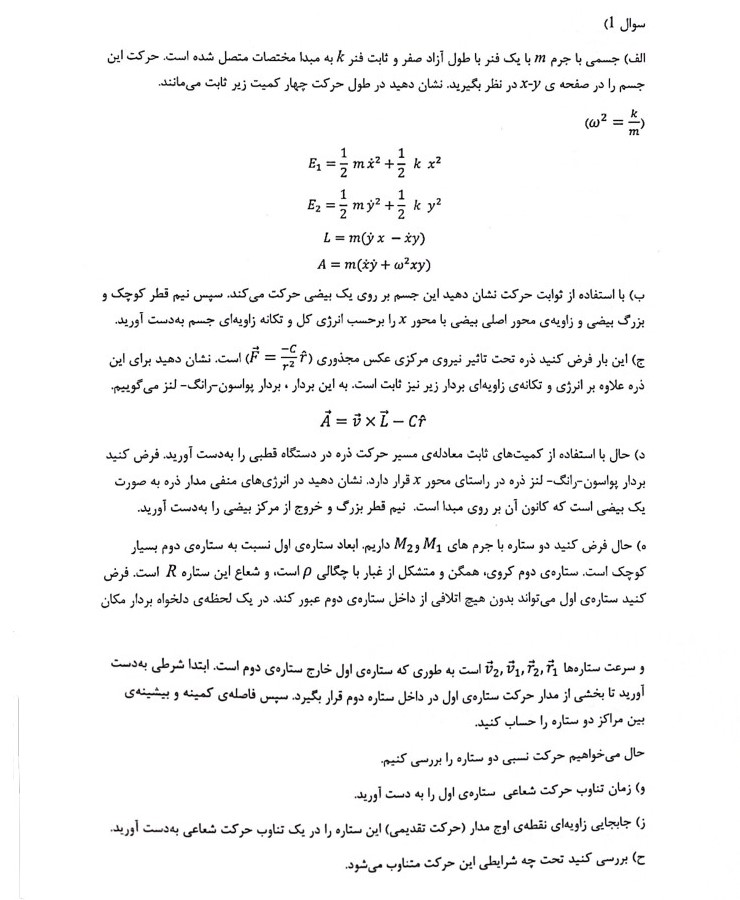 سوال 1)
الف) جسمی با جرم m با یک فنر با طول آزاد صفر و ثابت فنر k به مبدا مختصات متصل شده است. حرکت این
جسم را در صفحه ی x-y در نظر بگیرید. نشان دهید در طول حرکت چهار کمیت زیر ثابت می‌مانند.
(ω² = k/m)
E₁ = 1/2 m ẋ² + 1/2 k x²
E₂ = 1/2 m ẏ² + 1/2 k y²
L = m(ẏ x − ẋy)
A = m(ẋẏ + ω²xy)
ب) با استفاده از ثوابت حرکت نشان دهید این جسم بر روی یک بیضی حرکت می‌کند. سپس نیم قطر کوچک و
بزرگ بیضی و زاویه‌ی محور اصلی بیضی با محور x را برحسب انرژی کل و تکانه زاویه‌ای جسم به‌دست آورید.
ج) این بار فرض کنید ذره تحت تاثیر نیروی مرکزی عکس مجذوری (F⃗ = −C/r² r̂) است. نشان دهید برای این
ذره علاوه بر انرژی و تکانه‌ی زاویه‌ای بردار زیر نیز ثابت است. به این بردار ، بردار پواسون-رانگ- لنز می‌گوییم.
A⃗ = v⃗ × L⃗ − Cr̂
د) حال با استفاده از کمیت‌های ثابت معادله‌ی مسیر حرکت ذره در دستگاه قطبی را به‌دست آورید. فرض کنید
بردار پواسون-رانگ- لنز ذره در راستای محور x قرار دارد. نشان دهید در انرژی‌های منفی مدار ذره به صورت
یک بیضی است که کانون آن بر روی مبدا است. نیم قطر بزرگ و خروج از مرکز بیضی را به‌دست آورید.
ه) حال فرض کنید دو ستاره با جرم های M₁ و M₂ داریم. ابعاد ستاره‌ی اول نسبت به ستاره‌ی دوم بسیار
کوچک است. ستاره‌ی دوم کروی، همگن و متشکل از غبار با چگالی ρ است، و شعاع این ستاره R است. فرض
کنید ستاره‌ی اول می‌تواند بدون هیچ اتلافی از داخل ستاره‌ی دوم عبور کند. در یک لحظه‌ی دلخواه بردار مکان
و سرعت ستاره‌ها r⃗₁, r⃗₂, v⃗₁, v⃗₂ است به طوری که ستاره‌ی اول خارج ستاره‌ی دوم است. ابتدا شرطی به‌دست
آورید تا بخشی از مدار حرکت ستاره‌ی اول در داخل ستاره دوم قرار بگیرد. سپس فاصله‌ی کمینه و بیشینه‌ی
بین مراکز دو ستاره را حساب کنید.
حال می‌خواهیم حرکت نسبی دو ستاره را بررسی کنیم.
و) زمان تناوب حرکت شعاعی ستاره‌ی اول را به دست آورید.
ز) جابجایی زاویه‌ای نقطه‌ی اوج مدار (حرکت تقدیمی) این ستاره را در یک تناوب حرکت شعاعی به‌دست آورید.
ح) بررسی کنید تحت چه شرایطی این حرکت متناوب می‌شود.